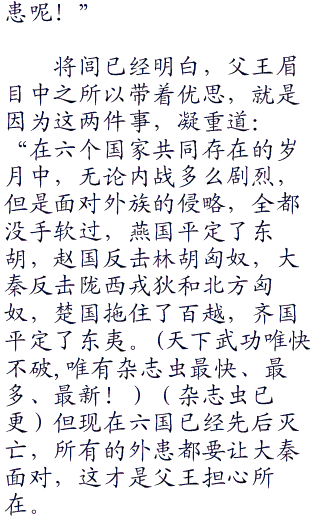 患呢！”
将闾已经明白，父王眉
目中之所以带着优思，就是
因为这两件事，凝重道：
“在六个国家共同存在的岁
月中，无论内战多么剧烈，
但是面对外族的侵略，全都
没手软过，燕国平定了东
胡，赵国反击林胡匈奴，大
秦反击陇西戎狄和北方匈
奴，楚国拖住了百越，齐国
平定了东夷。(天下武功唯快
不破,唯有杂志虫最快、最
多、最新！）（杂志虫已
更）但现在六国已经先后灭
亡，所有的外患都要让大秦
面对，这才是父王担心所
在。